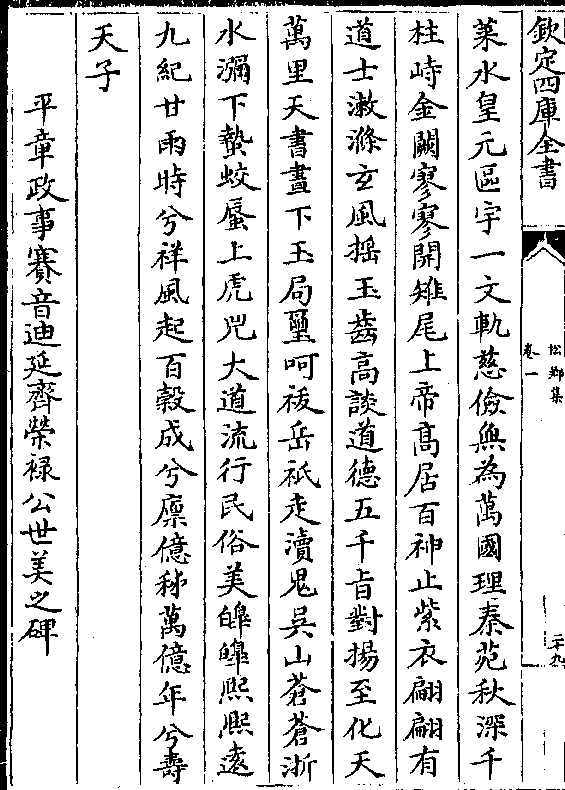 欽定四庫全書
松鄉集
卷一
二十九
萊水皇元區宇一文軌慈儉無為萬國理秦苑秋深千
柱峙金闕寥寥開雉尾上帝髙居百神止紫衣翩翩有
道士漱滌玄風揺玉齒高談道德五千㫖對揚至化天
萬里天書晝下玉局璽呵祓岳祇走瀆鬼吳山蒼蒼浙
水瀰下蟄蛟蜃上虎兕大道流行民俗美皥皥熙熙逺
九紀甘雨時兮祥風起百榖成兮廪億秭萬億年兮壽
天子
平章政事賽音迪延齊榮禄公世美之碑